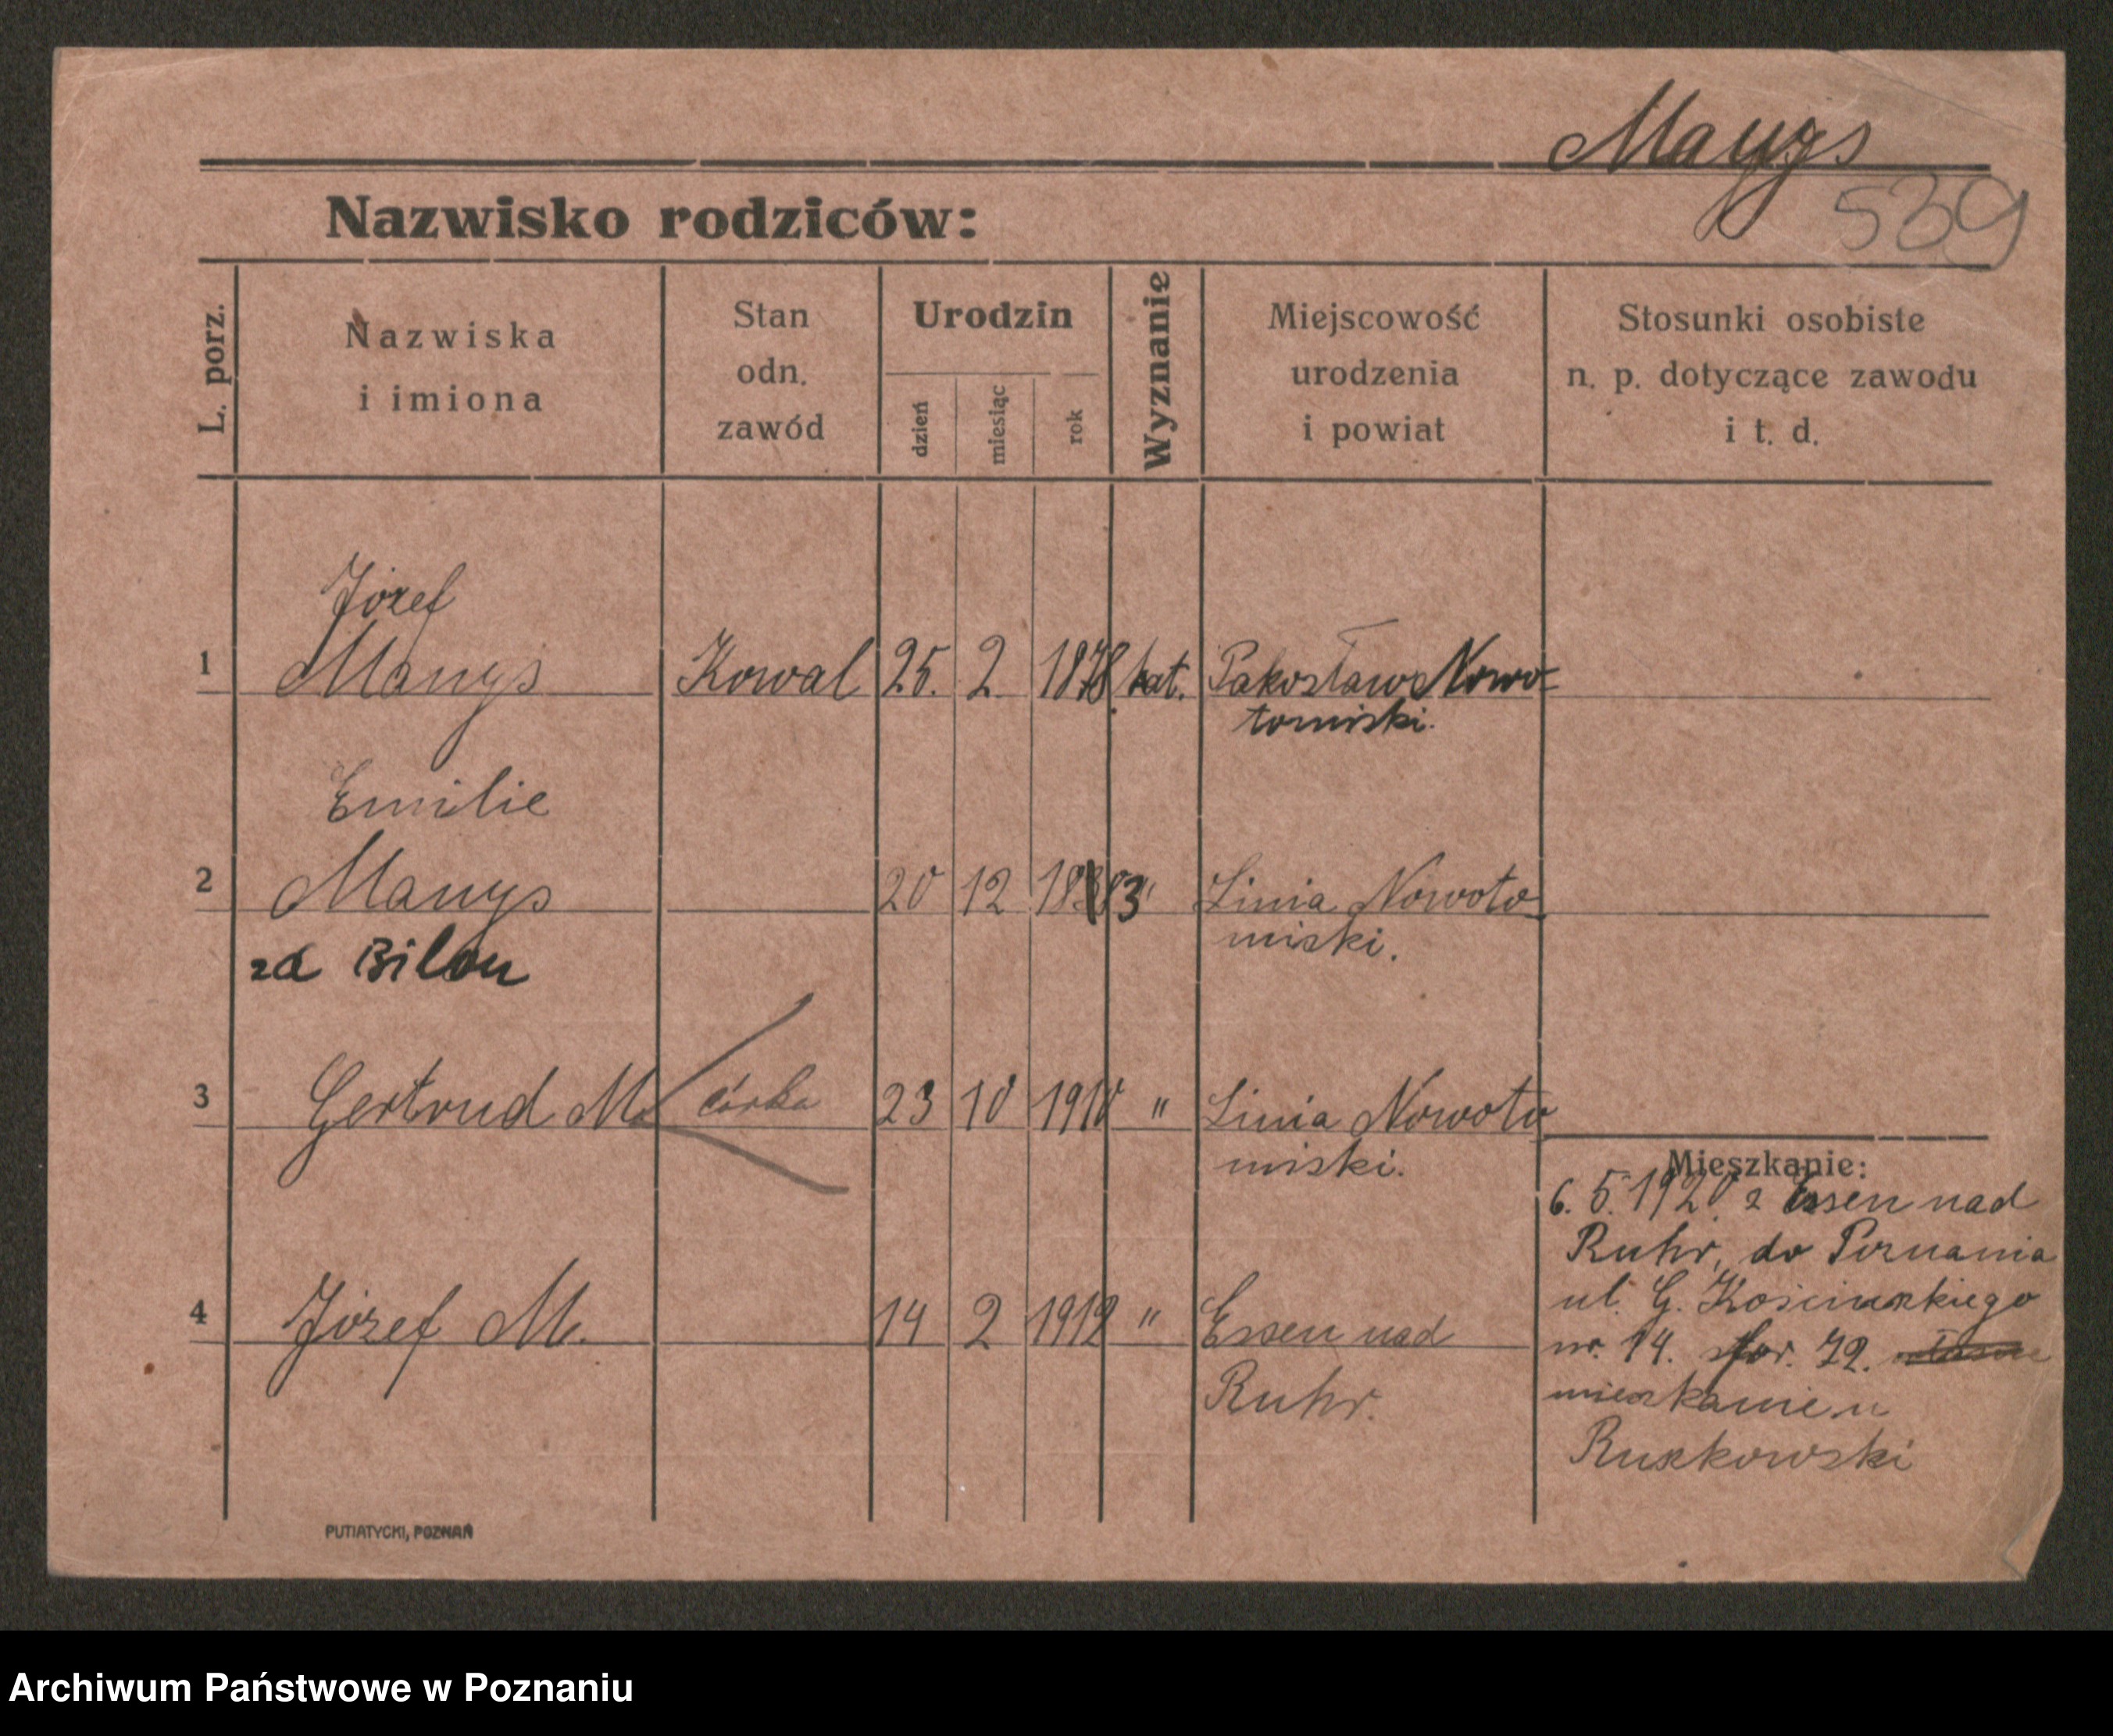 Manys
539
Nazwisko rodziców:
L. porz.
Nazwiska
i imiona
Stan
odn.
zawód
Urodzin
dzień
miesiąc
rok
Wyznanie
Miejscowość
urodzenia
i powiat
Stosunki osobiste
n. p. dotyczące zawodu
i t. d.
Józef
1 Manys Kowal 25. 2. 1878 kat. Pakosław Nowo-
tomiski.
Emilie
2 Manys 20 12 1883 " Linia Nowoto
miski.
za
3 Gertrud M. córka 23 10 1910 " Linia Nowoto
miski.
4 Józef M. 14 2 1912 " Essen nad
Ruhr.
Mieszkanie:
6. 5. 1920. z Essen nad
Ruhr, do Poznania
ul. G. Kosciuszkiego
nr. 14. 72.
mieszkanie u
Ruszkowski
PUTIATYCKI, POZNAŃ
Archiwum Państwowe w Poznaniu